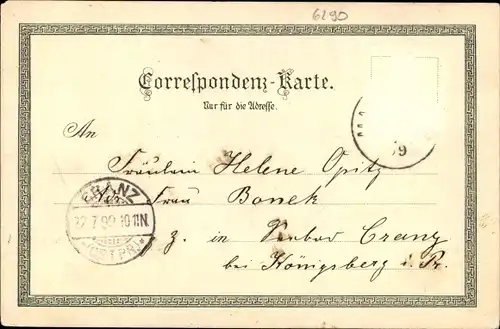 6290
Correspondenz-Karte.
Nur für die Adresse.
An
Fräulein Helene Opitz
Frau Bonek
z. in Seebad Cranz
bei Königsberg i. Pr.
CRANZ
22.7.99.10-11N.
(OSTPR)